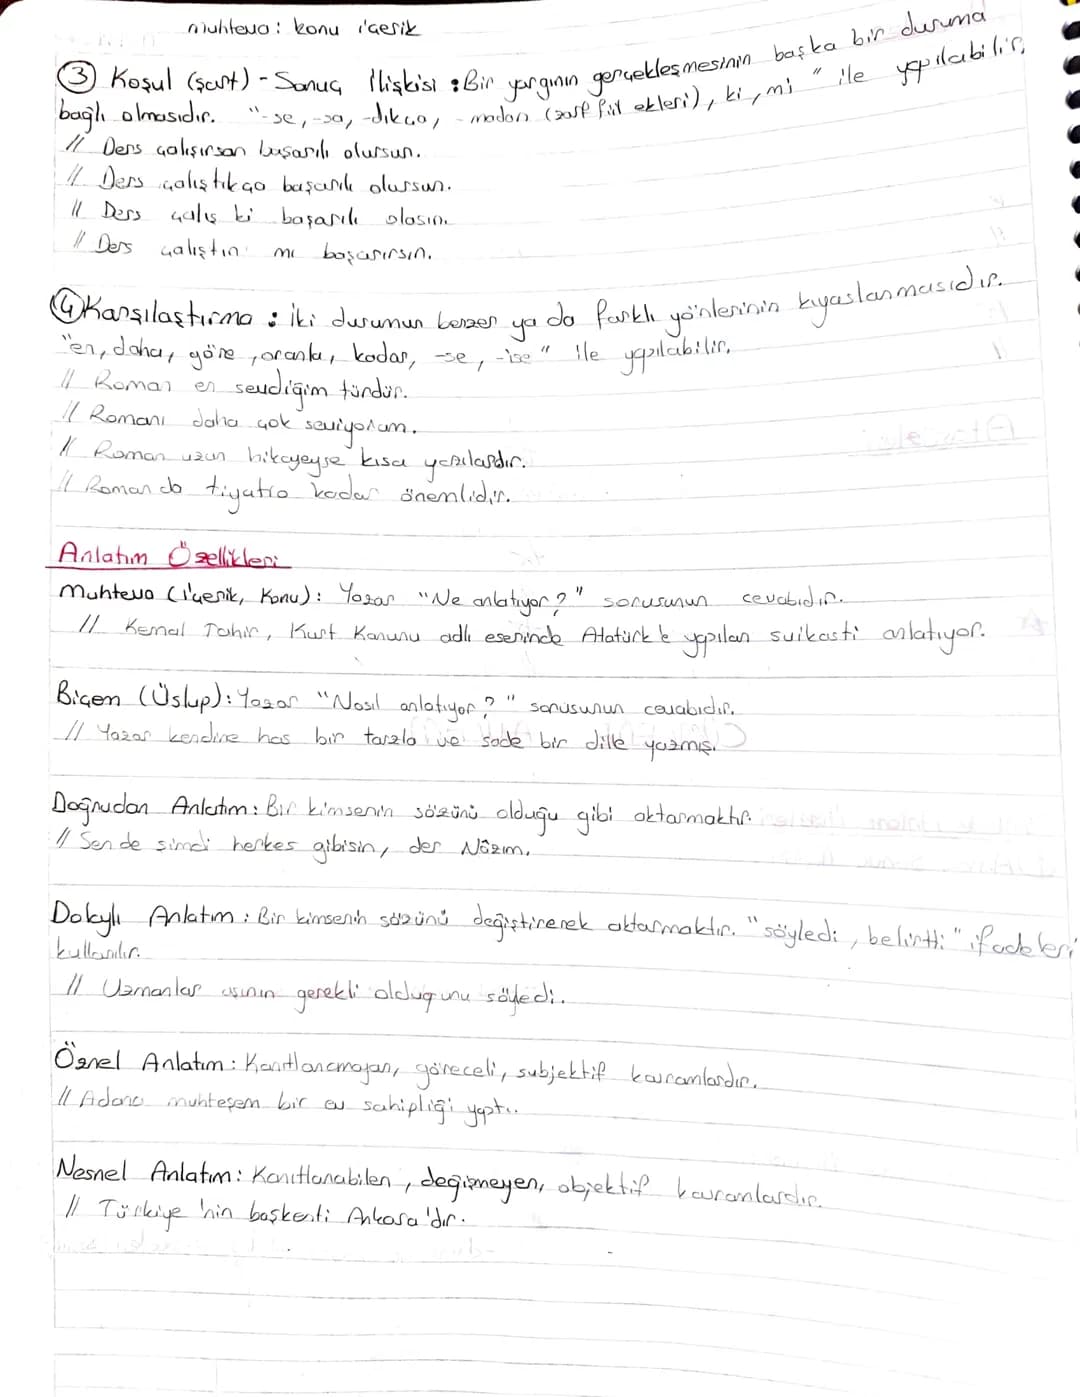 muhteva: konu içerik
③ Koşul (şart) - Sonuç İlişkisi : Bir yargının gerçekleşmesinin başka bir duruma
bağlı olmasıdır. "-se, -sa, -dıkça, -madan (zarf fiil ekleri), ki, mi" ile yapılabilir.
// Ders çalışırsan başarılı olursun.
// Ders çalıştıkça başarılı olursun.
// Ders çalış ki başarılı olasın.
// Ders çalıştın mı başarırsın.
④ Karşılaştırma : İki durumun benzer ya da farklı yönlerinin kıyaslanmasıdır.
"en, daha, göre, oranla, kadar, -se, -ise" ile yapılabilir.
// Roman en sevdiğim türdür.
// Romanı daha çok seviyorum.
// Roman uzun hikayeyse kısa yazılardır.
// Roman da tiyatro kadar önemlidir.
Anlatım Özellikleri
Muhteva (İçerik, Konu): Yazar "Ne anlatıyor?" sorusunun cevabıdır.
// Kemal Tahir, Kurt Kanunu adlı eserinde Atatürk'e yapılan suikasti anlatıyor.
Biçem (Üslup): Yazar "Nasıl anlatıyor?" sorusunun cevabıdır.
// Yazar kendine has bir tarzla ve sade bir dille yazmış.
Doğrudan Anlatım: Bir kimsenin sözünü olduğu gibi aktarmaktır.
// Sen de simdi herkes gibisin, der Nâzım.
Dolaylı Anlatım: Bir kimsenin sözünü değiştirerek aktarmaktır. "söyledi, belirtti" ifadeleri
kullanılır.
// Uzmanlar aşının gerekli oldugunu söyledi.
Öznel Anlatım: Kanıtlanamayan, göreceli, subjektif kavramlardır.
// Adana muhteşem bir ev sahipliği yaptı.
Nesnel Anlatım: Kanıtlanabilen, değişmeyen, objektif kavramlardır.
// Türkiye'nin başkenti Ankara'dır.